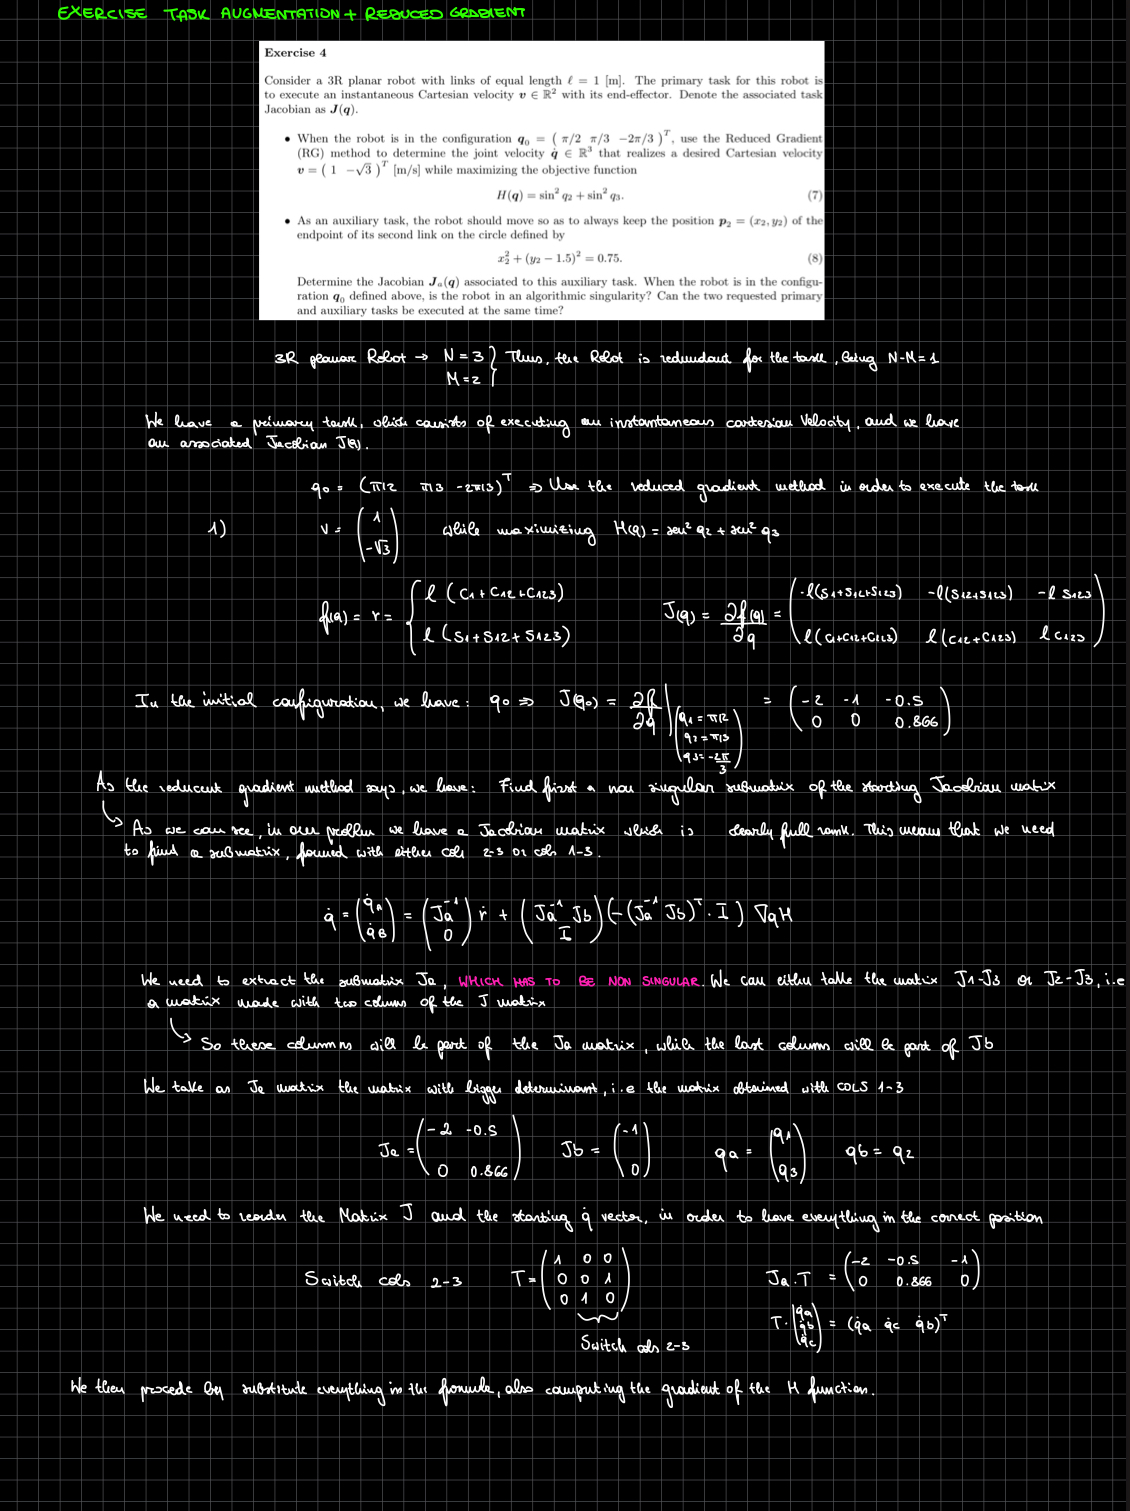 EXERCISE TASK AUGMENTATION + REDUCED GRADIENT
Exercise 4
Consider a 3R planar robot with links of equal length ℓ = 1 [m]. The primary task for this robot is
to execute an instantaneous Cartesian velocity v ∈ ℝ² with its end-effector. Denote the associated task
Jacobian as J(q).
• When the robot is in the configuration q₀ = ( π/2 π/3 −2π/3 )ᵀ, use the Reduced Gradient
(RG) method to determine the joint velocity q̇ ∈ ℝ³ that realizes a desired Cartesian velocity
v = ( 1 −√3 )ᵀ [m/s] while maximizing the objective function
H(q) = sin² q₂ + sin² q₃. (7)
• As an auxiliary task, the robot should move so as to always keep the position p₂ = (x₂, y₂) of the
endpoint of its second link on the circle defined by
x₂² + (y₂ − 1.5)² = 0.75. (8)
Determine the Jacobian Jₐ(q) associated to this auxiliary task. When the robot is in the configu-
ration q₀ defined above, is the robot in an algorithmic singularity? Can the two requested primary
and auxiliary tasks be executed at the same time?
3R planar Robot → N = 3 } Thus, the Robot is redundant for the task, being N-M = 1
M = 2
We have a primary task, which consists of executing an instantaneous cartesian Velocity, and we have
an associated Jacobian J(q).
q0 = (π/2 π/3 -2π/3)ᵀ ⇒ Use the reduced gradient method in order to execute the task
1) v = (1 -√3) while maximizing H(q) = sen² q2 + sen² q3
f(q) = r = { l (C1 + C12 + C123) J(q) = ∂f(q)/∂q = ( -l(S1+S12+S123) -l(S12+S123) -l S123 )
l (S1 + S12 + S123) l(C1+C12+C123) l(C12+C123) l C123
In the initial configuration, we have: q0 ⇒ J(q0) = ∂f/∂q | = ( -2 -1 -0.5
q1 = π/2 0 0 0.866 )
q2 = π/3
q3 = -2π/3
As the reducent gradient method says, we have: Find first a non singular submatrix of the starting Jacobian matrix
↳ As we can see, in our problem we have a Jacobian matrix which is clearly full rank. This means that we need
to find a submatrix, formed with either cols 2-3 or cols 1-3.
q̇ = (q̇A q̇B) = (Ja⁻¹ 0) ṙ + (Ja⁻¹ Jb I) (-(Ja⁻¹ Jb)ᵀ · I) ∇qH
We need to extract the submatrix Ja, WHICH HAS TO BE NON SINGULAR. We can either take the matrix J1-J3 or J2-J3, i.e
a matrix made with two columns of the J matrix
↳ So these columns will be part of the Ja matrix, while the last column will be part of Jb
We take as Ja matrix the matrix with bigger determinant, i.e the matrix obtained with COLS 1-3
Ja = ( -2 -0.5 Jb = ( -1 qa = ( q1 qb = q2
0 0.866 ) 0 ) q3 )
We need to reorder the Matrix J and the starting q̇ vector, in order to have everything in the correct position
Switch cols 2-3 T = ( 1 0 0 Ja · T = ( -2 -0.5 -1
0 0 1 0 0.866 0 )
0 1 0 )
T · (q̇a q̇b q̇c) = (q̇a q̇c q̇b)ᵀ
Switch cols 2-3
We then procede by substitute everything in the formula, also computing the gradient of the H function.